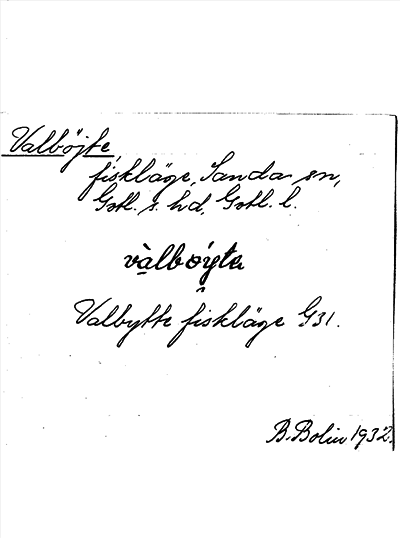 Valböjte,
fiskläge, Sanda sn,
Gotl. s. hd, Gotl. l.
vàlbåýta
Valbytte fiskläge G31.
B. Bolin 1932.